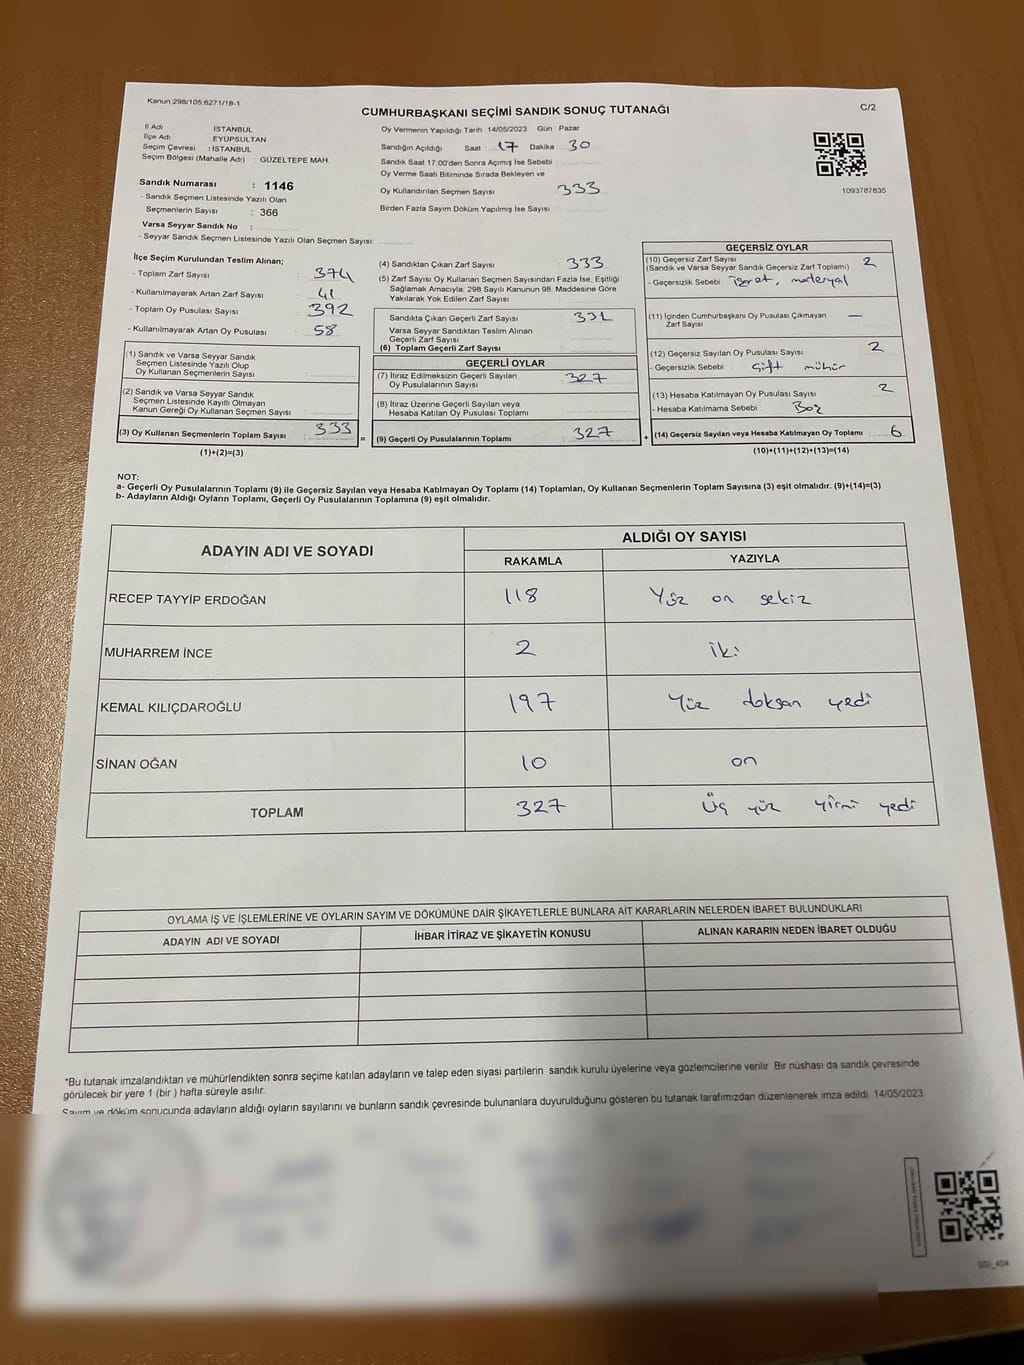 Kanun:298/105,6271/18-1
CUMHURBAŞKANI SEÇİMİ SANDIK SONUÇ TUTANAĞI
C/2
İl Adı : İSTANBUL
İlçe Adı : EYÜPSULTAN
Seçim Çevresi : İSTANBUL
Seçim Bölgesi (Mahalle Adı) : GÜZELTEPE MAH.
Sandık Numarası : 1146
- Sandık Seçmen Listesinde Yazılı Olan
Seçmenlerin Sayısı : 366
Varsa Seyyar Sandık No :
- Seyyar Sandık Seçmen Listesinde Yazılı Olan Seçmen Sayısı:
Oy Vermenin Yapıldığı Tarih 14/05/2023 Gün : Pazar
Sandığın Açıldığı Saat : 17 Dakika : 30
Sandık Saat 17:00'den Sonra Açımış İse Sebebi :
Oy Verme Saati Bitiminde Sırada Bekleyen ve
Oy Kullandırılan Seçmen Sayısı : 333
Birden Fazla Sayım Döküm Yapılmış İse Sayısı :
1093787835
İlçe Seçim Kurulundan Teslim Alınan;
- Toplam Zarf Sayısı : 374
- Kullanılmayarak Artan Zarf Sayısı : 41
- Toplam Oy Pusulası Sayısı : 392
- Kullanılmayarak Artan Oy Pusulası : 58
(1) Sandık ve Varsa Seyyar Sandık
Seçmen Listesinde Yazılı Olup
Oy Kullanan Seçmenlerin Sayısı :
(2) Sandık ve Varsa Seyyar Sandık
Seçmen Listesinde Kayıtlı Olmayan
Kanun Gereği Oy Kullanan Seçmen Sayısı :
(3) Oy Kullanan Seçmenlerin Toplam Sayısı : 333
(1)+(2)=(3)
(4) Sandıktan Çıkan Zarf Sayısı : 333
(5) Zarf Sayısı Oy Kullanan Seçmen Sayısından Fazla İse, Eşitliği
Sağlamak Amacıyla; 298 Sayılı Kanunun 98. Maddesine Göre
Yakılarak Yok Edilen Zarf Sayısı :
Sandıkta Çıkan Geçerli Zarf Sayısı : 331
Varsa Seyyar Sandıktan Teslim Alınan
Geçerli Zarf Sayısı :
(6) Toplam Geçerli Zarf Sayısı :
GEÇERLİ OYLAR
(7) İtiraz Edilmeksizin Geçerli Sayılan
Oy Pusulalarının Sayısı : 327
(8) İtiraz Üzerine Geçerli Sayılan veya
Hesaba Katılan Oy Pusulası Toplamı :
= (9) Geçerli Oy Pusulalarının Toplamı : 327
GEÇERSİZ OYLAR
(10) Geçersiz Zarf Sayısı : 2
(Sandık ve Varsa Seyyar Sandık Geçersiz Zarf Toplamı)
- Geçersizlik Sebebi : işaret, materyal
(11) İçinden Cumhurbaşkanı Oy Pusulası Çıkmayan
Zarf Sayısı : —
(12) Geçersiz Sayılan Oy Pusulası Sayısı : 2
- Geçersizlik Sebebi : Çift mühür
(13) Hesaba Katılmayan Oy Pusulası Sayısı : 2
- Hesaba Katılmama Sebebi : Boş
+ (14) Geçersiz Sayılan veya Hesaba Katılmayan Oy Toplamı : 6
(10)+(11)+(12)+(13)=(14)
NOT:
a- Geçerli Oy Pusulalarının Toplamı (9) ile Geçersiz Sayılan veya Hesaba Katılmayan Oy Toplamı (14) Toplamları, Oy Kullanan Seçmenlerin Toplam Sayısına (3) eşit olmalıdır. (9)+(14)=(3)
b- Adayların Aldığı Oyların Toplamı, Geçerli Oy Pusulalarının Toplamına (9) eşit olmalıdır.
ADAYIN ADI VE SOYADI
ALDIĞI OY SAYISI
RAKAMLA YAZIYLA
RECEP TAYYİP ERDOĞAN 118 Yüz on sekiz
MUHARREM İNCE 2 iki
KEMAL KILIÇDAROĞLU 197 Yüz doksan yedi
SİNAN OĞAN 10 on
TOPLAM 327 Üç yüz yirmi yedi
OYLAMA İŞ VE İŞLEMLERİNE VE OYLARIN SAYIM VE DÖKÜMÜNE DAİR ŞİKAYETLERLE BUNLARA AİT KARARLARIN NELERDEN İBARET BULUNDUKLARI
ADAYIN ADI VE SOYADI İHBAR İTİRAZ VE ŞİKAYETİN KONUSU ALINAN KARARIN NEDEN İBARET OLDUĞU
*Bu tutanak imzalandıktan ve mühürlendikten sonra seçime katılan adayların ve talep eden siyasi partilerin sandık kurulu üyelerine veya gözlemcilerine verilir. Bir nüshası da sandık çevresinde
görülecek bir yere 1 (bir ) hafta süreyle asılır.
Sayım ve döküm sonucunda adayların aldığı oyların sayılarını ve bunların sandık çevresinde bulunanlara duyurulduğunu gösteren bu tutanak tarafımızdan düzenlenerek imza edildi. 14/05/2023